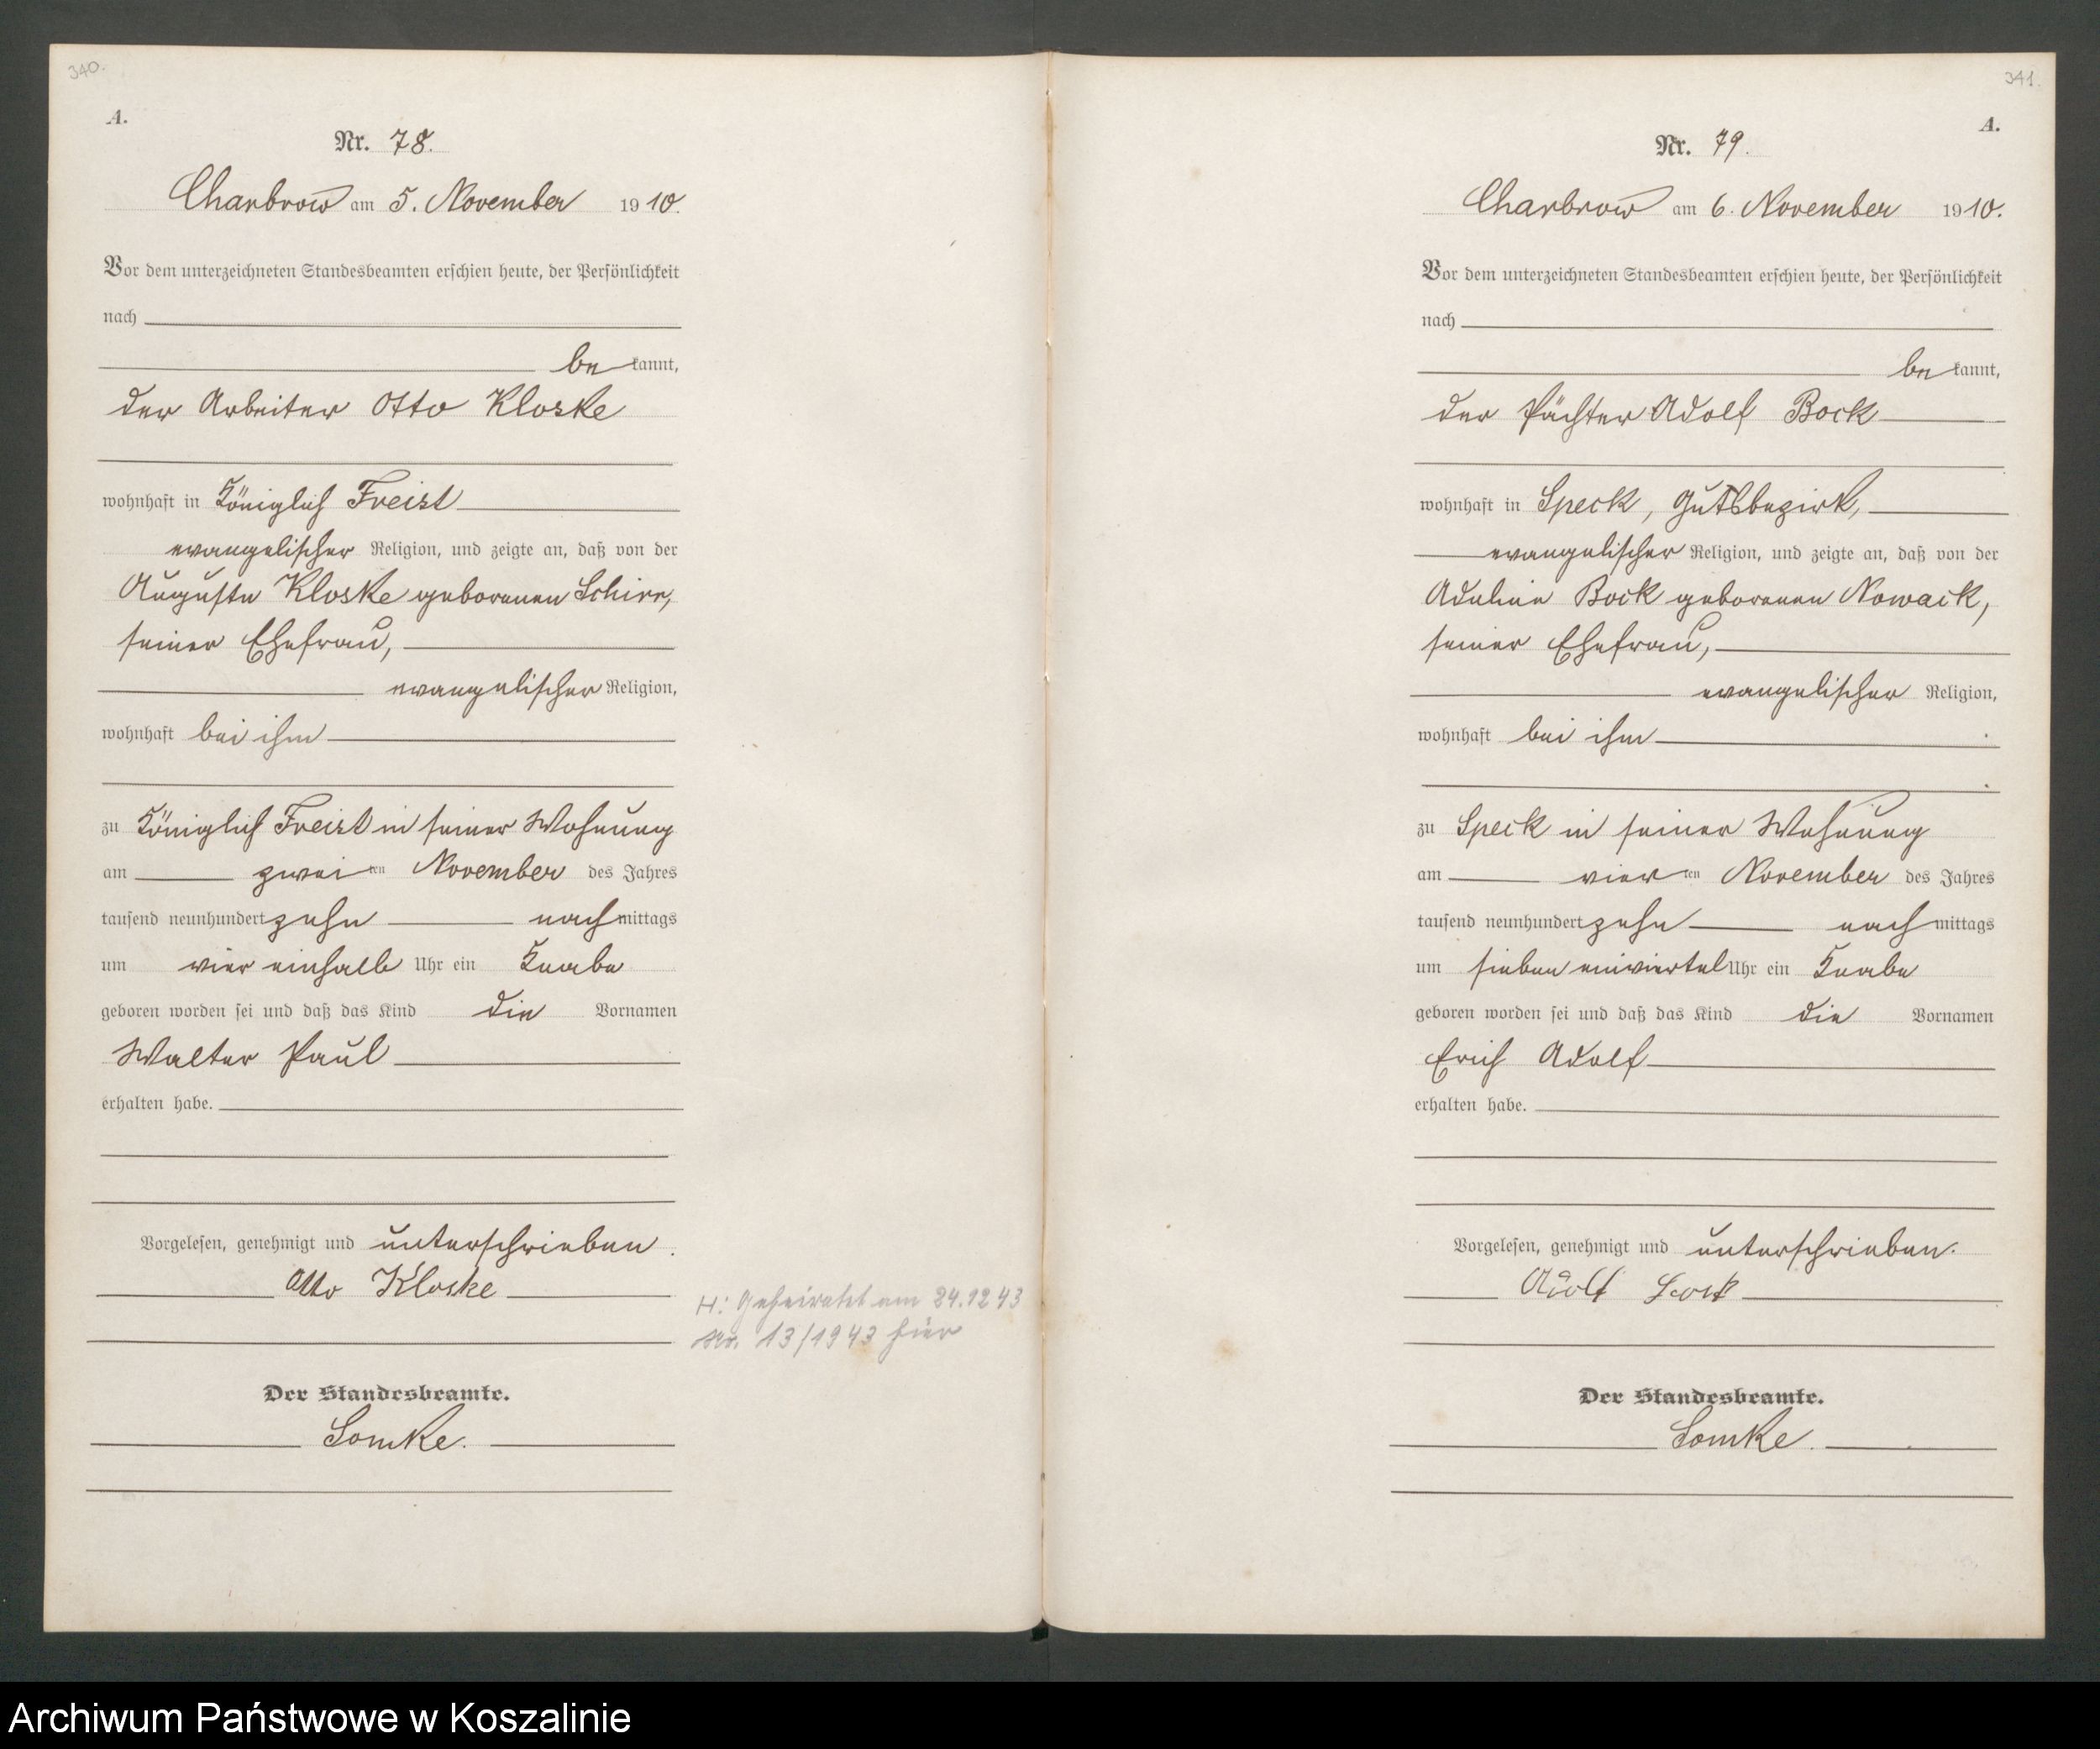 340.
A.
Nr. 78.
Charbrow am 5. November 1910.
Vor dem unterzeichneten Standesbeamten erschien heute, der Persönlichkeit
nach
be kannt,
der Arbeiter Otto Kloske
wohnhaft in Königlich Freist
evangelischer Religion, und zeigte an, daß von der
Auguste Kloske geborenen Schirr,
seiner Ehefrau,
evangelischer Religion,
wohnhaft bei ihm
zu Königlich Freist in seiner Wohnung
am zwei ten November des Jahres
tausend neunhundert zehn nach mittags
um vier einhalb Uhr ein Knabe
geboren worden sei und daß das Kind die Vornamen
Walter Paul
erhalten habe.
Vorgelesen, genehmigt und unterschrieben.
Otto Kloske
H: Geheiratet am 24.12 43
Nr. 13/1943 hier
Der Standesbeamte.
Lomke.
341.
A.
Nr. 79.
Charbrow am 6. November 1910.
Vor dem unterzeichneten Standesbeamten erschien heute, der Persönlichkeit
nach
be kannt,
der Pächter Adolf Bock
wohnhaft in Speck, Gutsbezirk,
evangelischer Religion, und zeigte an, daß von der
Adeline Bock geborenen Nowack,
seiner Ehefrau,
evangelischer Religion,
wohnhaft bei ihm
zu Speck in seiner Wohnung
am vier ten November des Jahres
tausend neunhundert zehn nach mittags
um sieben einviertel Uhr ein Knabe
geboren worden sei und daß das Kind die Vornamen
Erich Adolf
erhalten habe.
Vorgelesen, genehmigt und unterschrieben.
Adolf Bock
Der Standesbeamte.
Lomke.
Archiwum Państwowe w Koszalinie